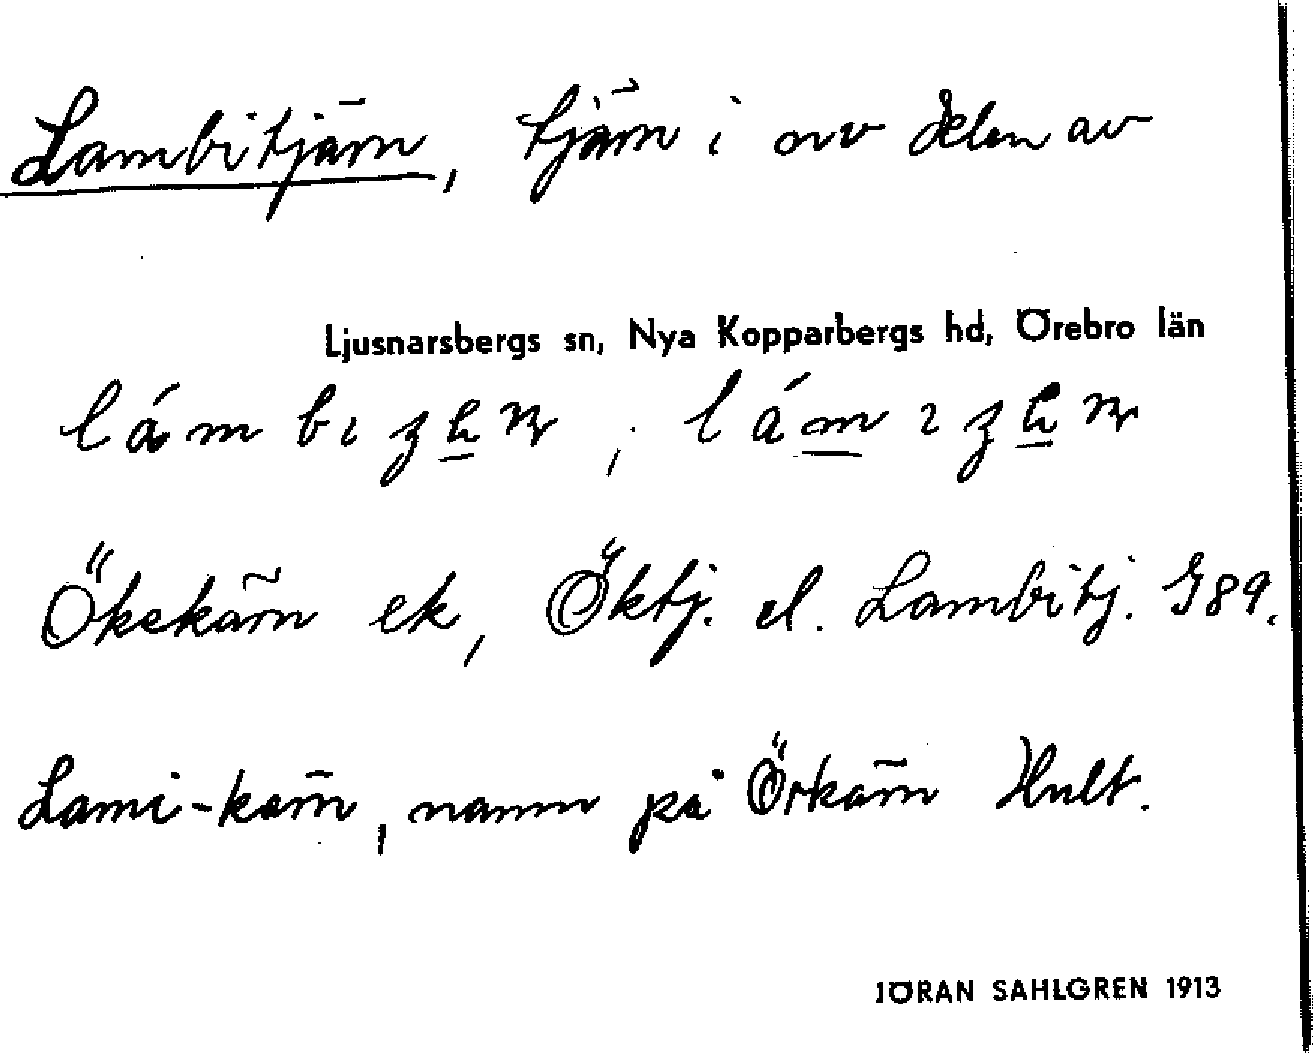 Lambitjärn, tjärn i nv delen av
Ljusnarsbergs sn, Nya Kopparbergs hd, Örebro län
Ökekärn ek, Öktj. el. Lambitj. G89.
Lami-kärn, namn på Örkärn Hult.
JÖRAN SAHLGREN 1913